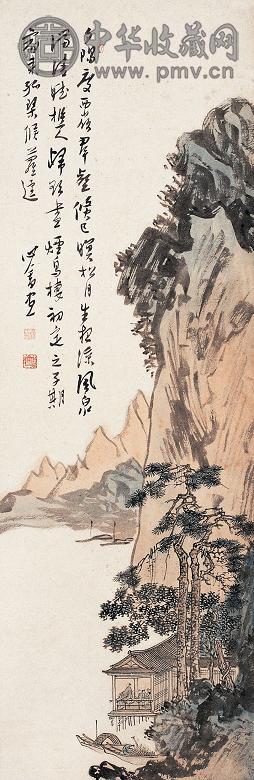 中华收藏网
www.pmv.cn
夕陽度西嶺群壑倏已暝松月生夜涼風泉
滿清聽樵人歸欲盡煙鳥棲初定之子期
宿來孤琴候蘿逕 心畬畫